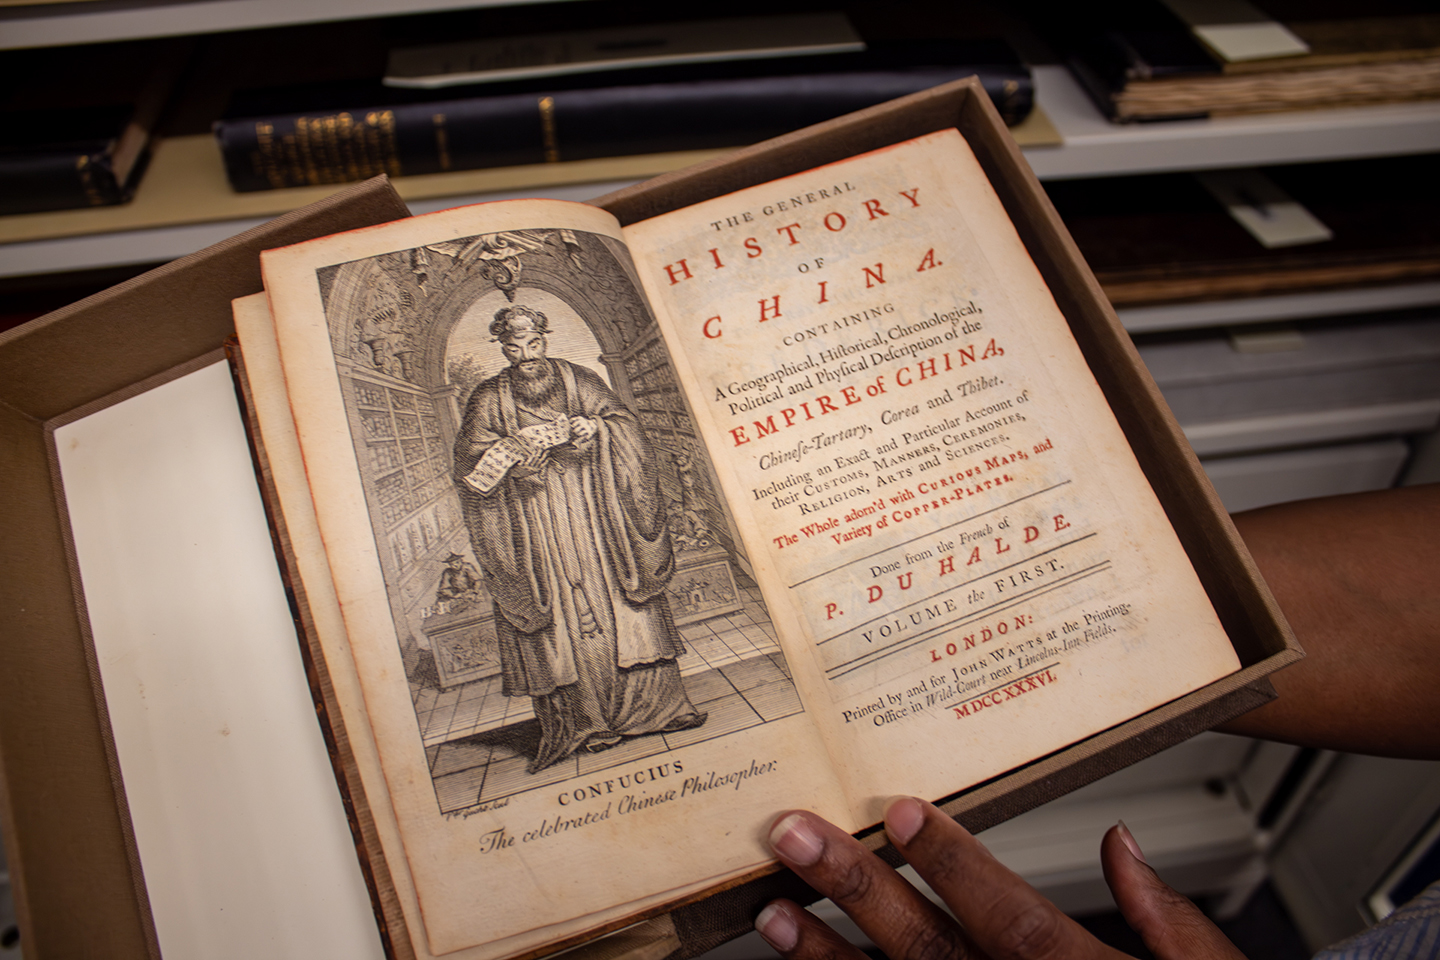 CONFUCIUS
The celebrated Chinese Philosopher.
THE GENERAL
HISTORY
OF
CHINA.
CONTAINING
A Geographical, Hiſtorical, Chronological,
Political and Phyſical Deſcription of the
EMPIRE of CHINA,
Chineſe-Tartary, Corea and Thibet.
Including an Exact and Particular Account of
their CUSTOMS, MANNERS, CEREMONIES,
RELIGION, ARTS and SCIENCES.
The Whole adorn'd with CURIOUS MAPS, and
Variety of COPPER-PLATES.
Done from the French of
P. DU HALDE.
VOLUME the FIRST.
LONDON:
Printed by and for JOHN WATTS at the Printing-
Office in Wild-Court near Lincolns-Inn Fields.
MDCCXXXVI.